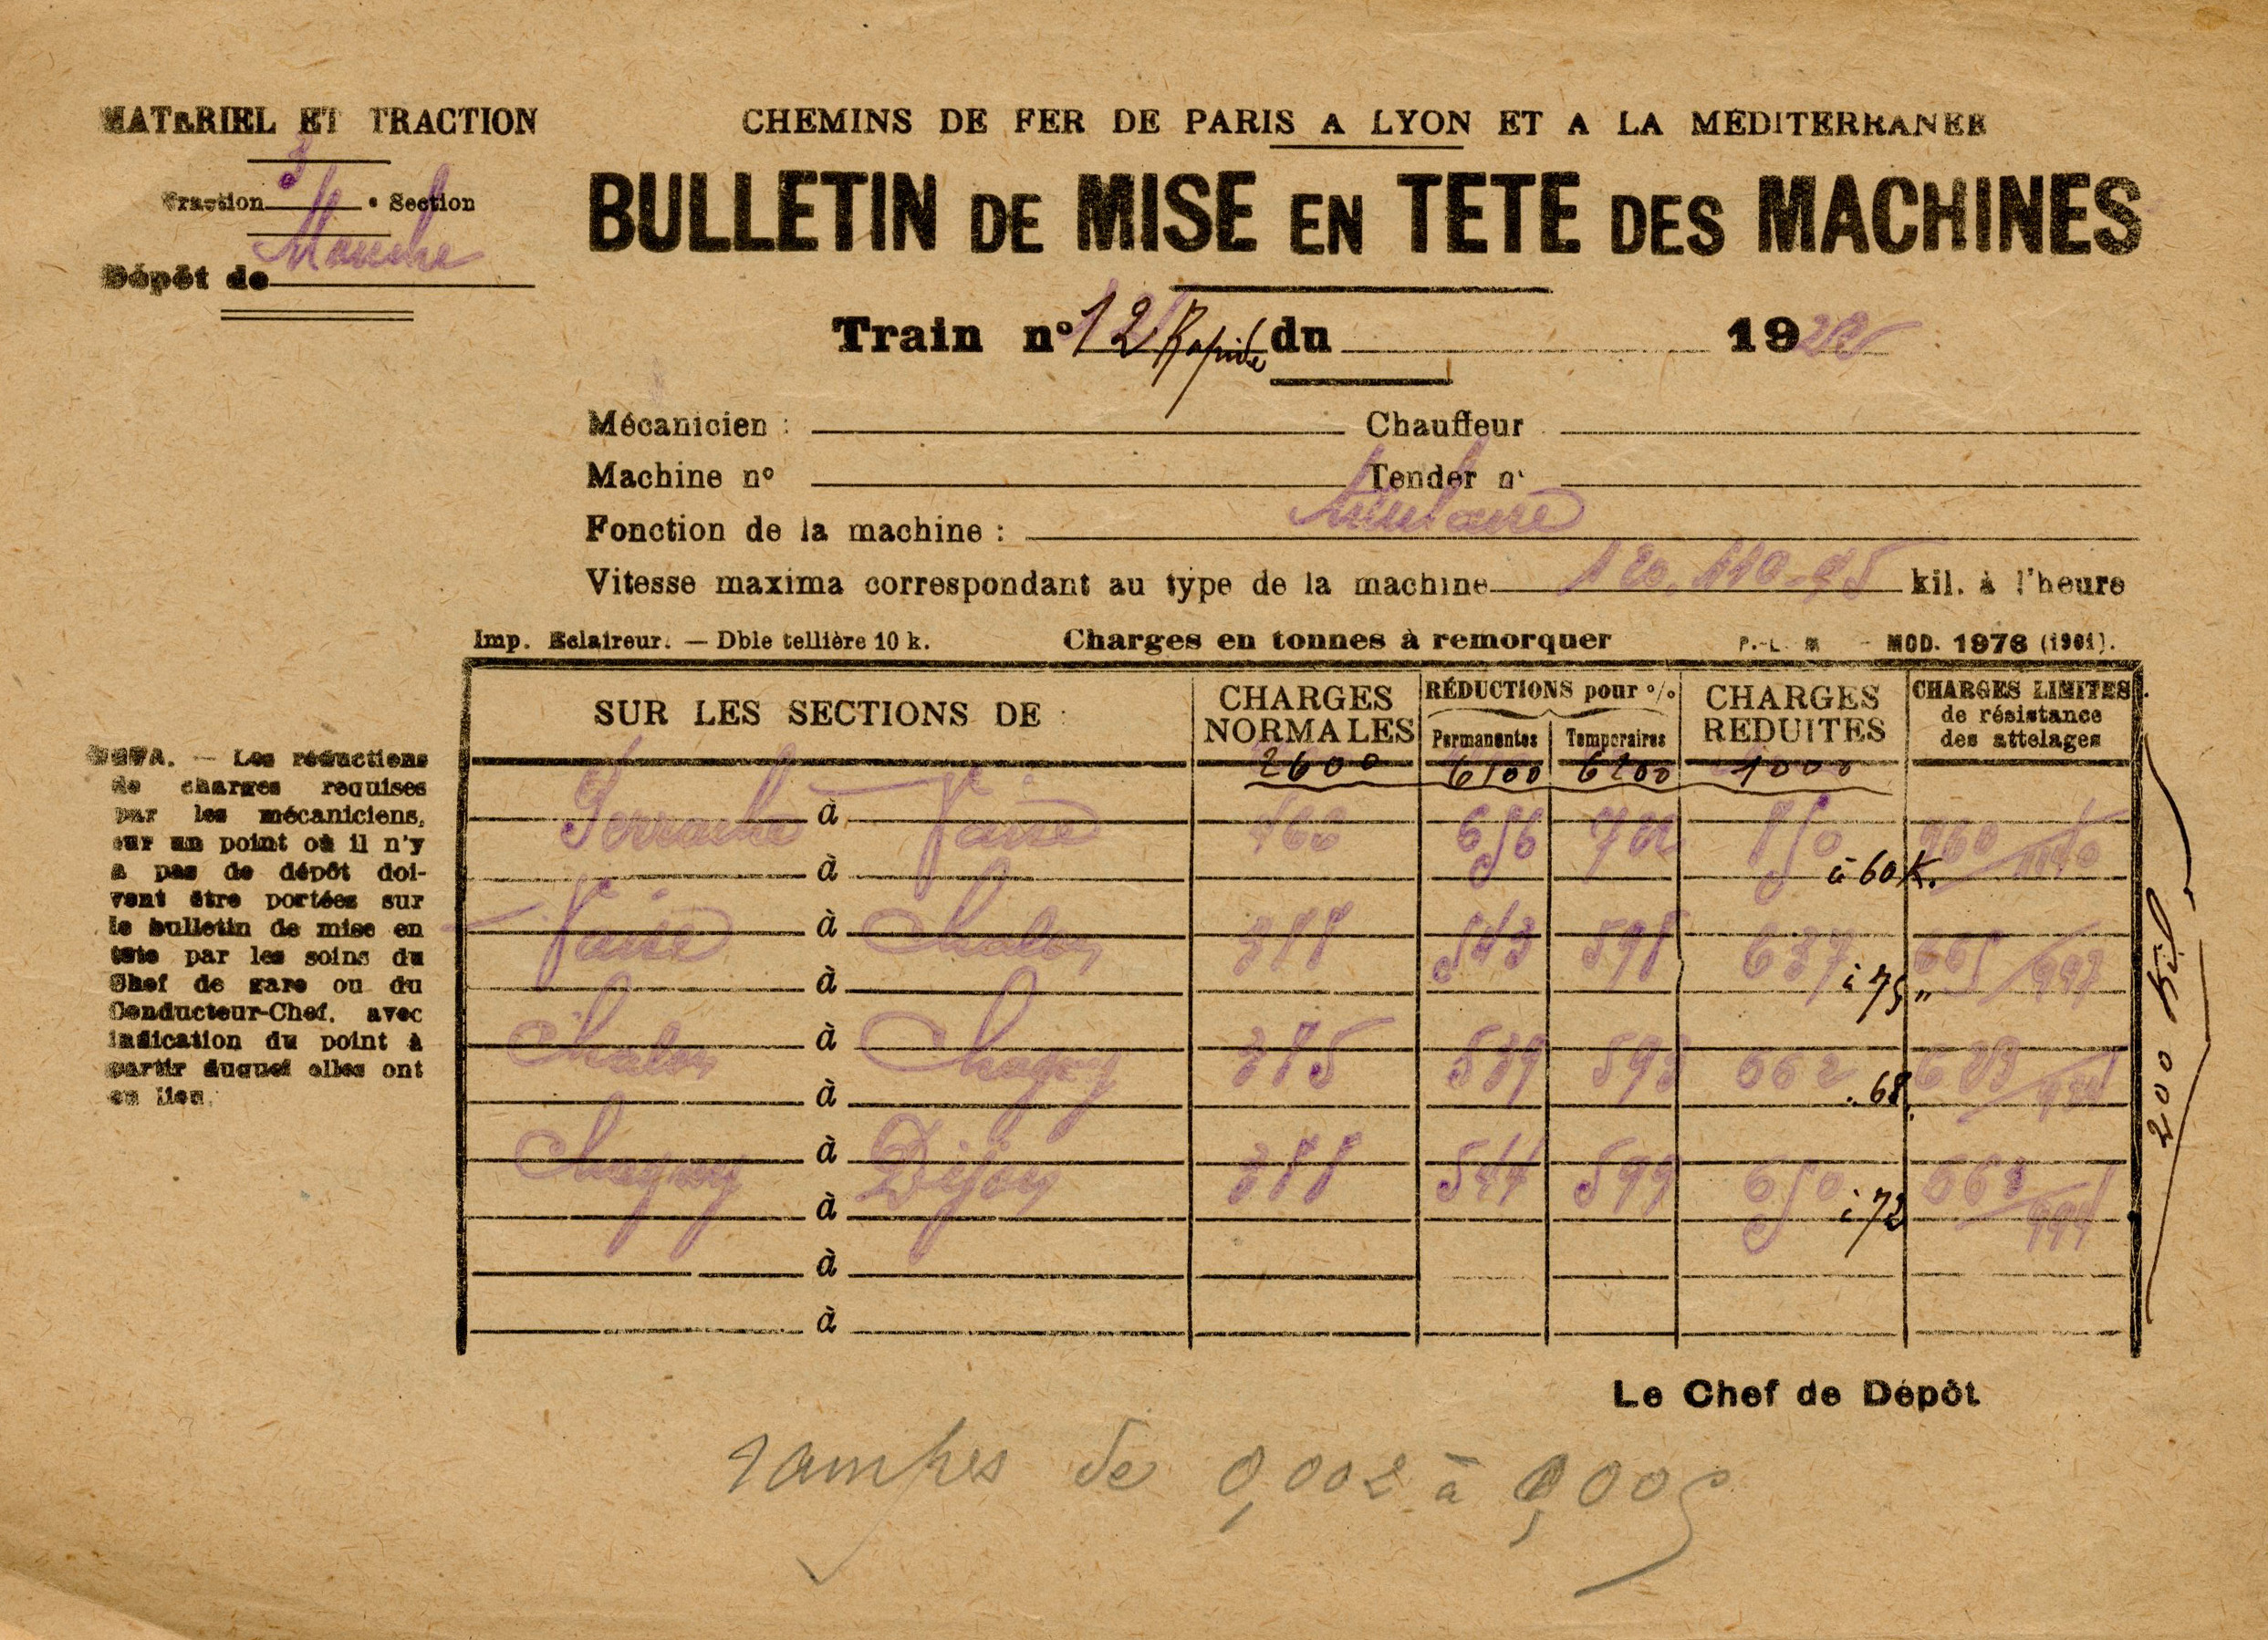 MATERIEL ET TRACTION
CHEMINS DE FER DE PARIS A LYON ET A LA MÉDITERRANÉE
3
Traction • Section
BULLETIN DE MISE EN TETE DES MACHINES
Dépôt de Mouche
Train n° 12 Rapide du 19
Mécanicien : Chauffeur
Machine n° Tender n°
Fonction de la machine : titulaire
Vitesse maxima correspondant au type de la machine 120. 110-95 kil. à l'heure
Imp. Eclaireur. — Dble tellière 10 k. Charges en tonnes à remorquer P.-L. M. - MOD. 1976 (1901).
SUR LES SECTIONS DE : CHARGES NORMALES RÉDUCTIONS pour % Permanentes Temporaires CHARGES REDUITES CHARGES LIMITES de résistance des attelages
2600 6100 6200 1000
Perrache à Vaise 468 656 722 850
à à 60 K.
Vaise à Chalon 388 543 598 637
à à 75 "
Chalon à Chagny 385 539 593 662
à . 68
Chagny à Dijon 388 544 599 650
à à 72
à
à
200 Kil
NOTA. — Les réductions
de charges requises
par les mécaniciens,
sur un point où il n'y
a pas de dépôt doi-
vent être portées sur
le bulletin de mise en
tête par les soins du
Chef de gare ou du
Conducteur-Chef. avec
indication du point à
partir duquel elles ont
eu lieu.
Le Chef de Dépôt
rampes de 0,002 à 0,005